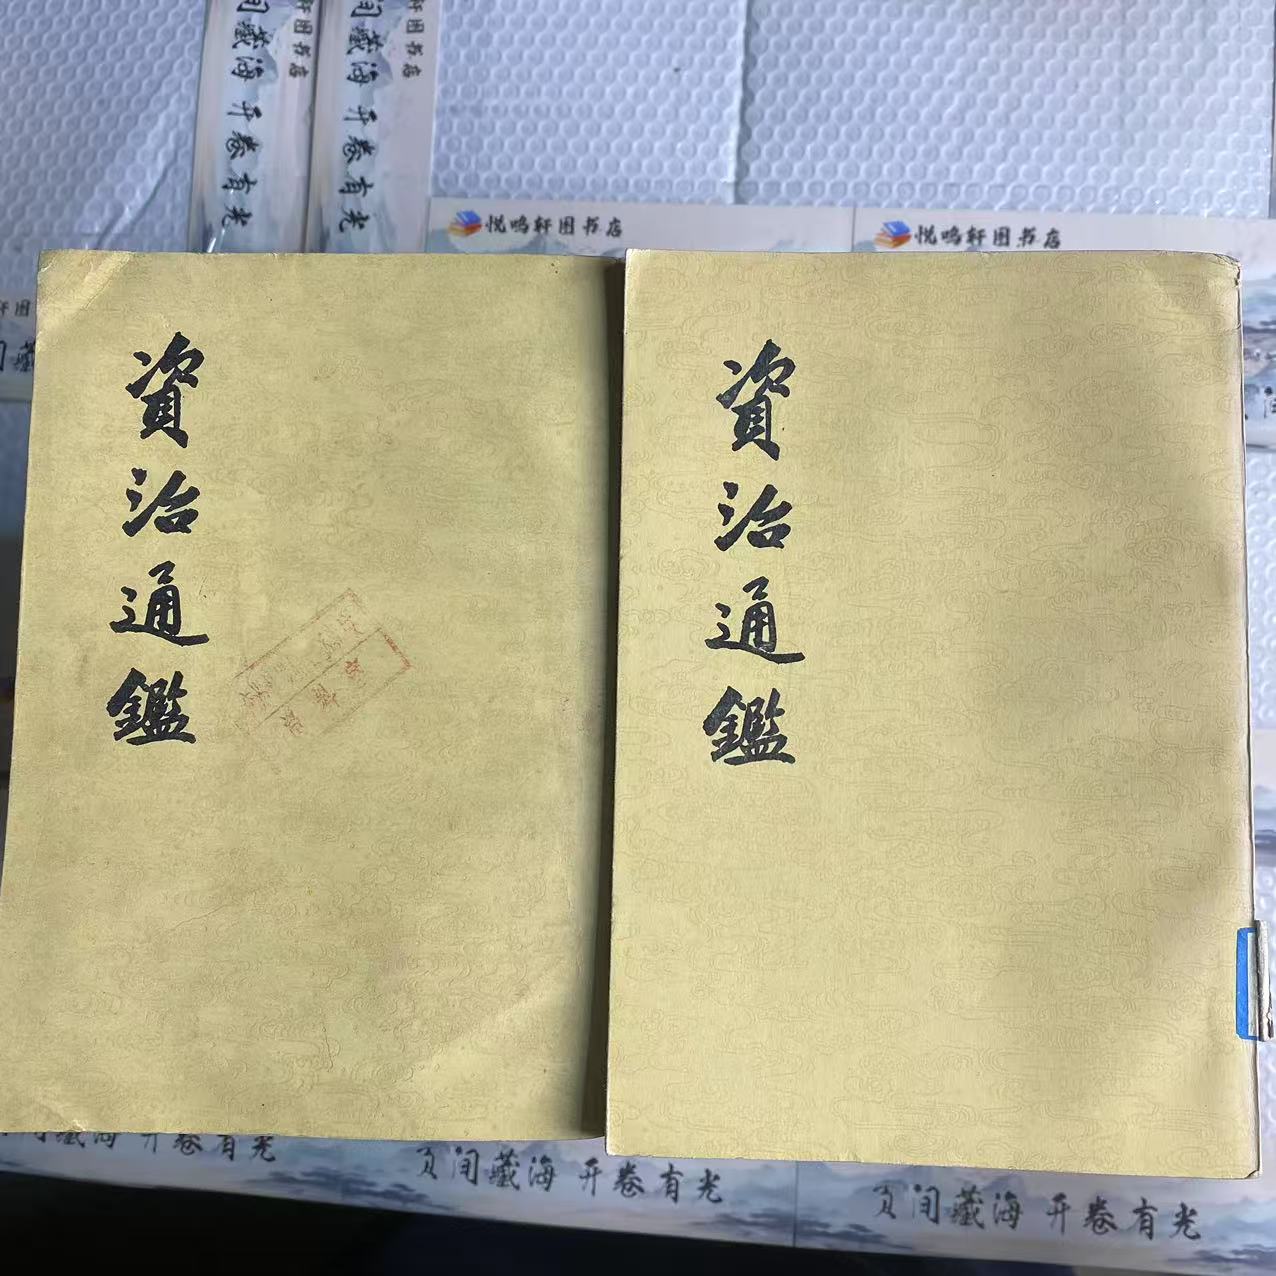 間藏海 开卷有光
轩图书店
間藏海 开卷有光
轩图书店
悦鸣轩图书店
悦鸣轩图书店
資治通鑑
資治通鑑
开卷有光
頁间藏海 开卷有光
頁间藏海 开卷有光